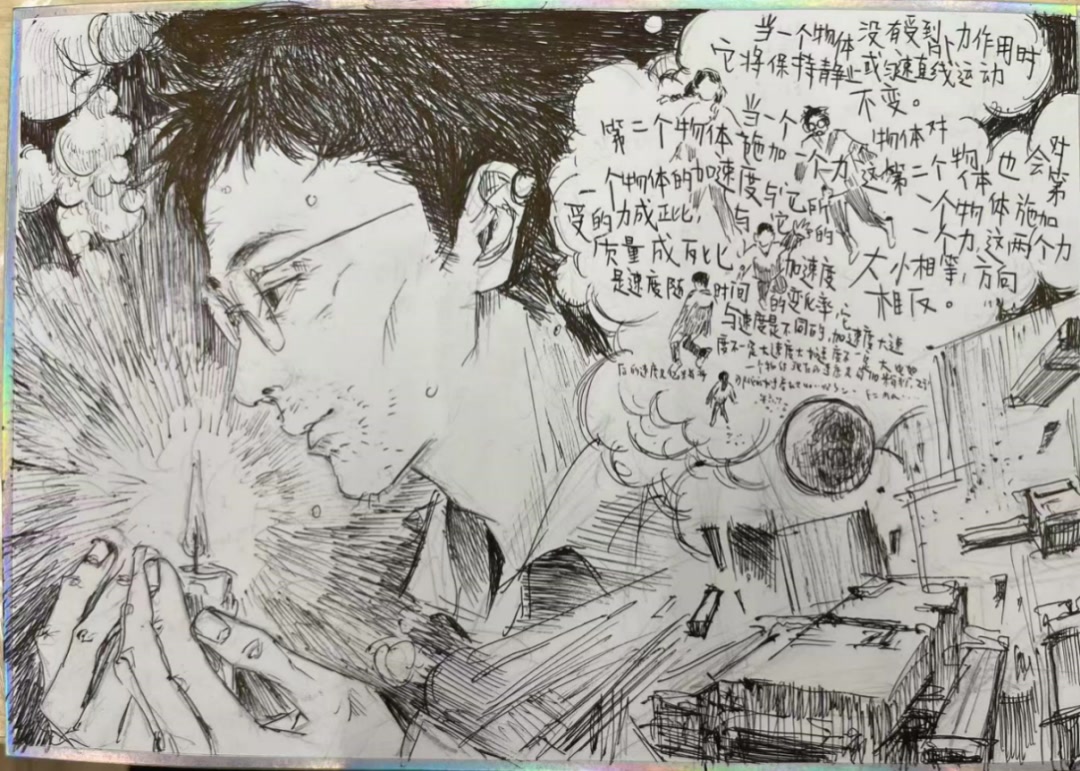 当一个物体没有受到外力作用时
它将保持静止或匀速直线运动
不变。
当一个物体对
第二个物体施加一个力,这第二个物体也会对第
一个物体施加一个力,这两个力
大小相等,方向
相反。
一个物体的加速度与它所
受的力成正比,与它的
质量成反比。
加速度
是速度随时间的变化率,它
与速度是不同的,加速度大速
度不一定大速度大加速度不一定大